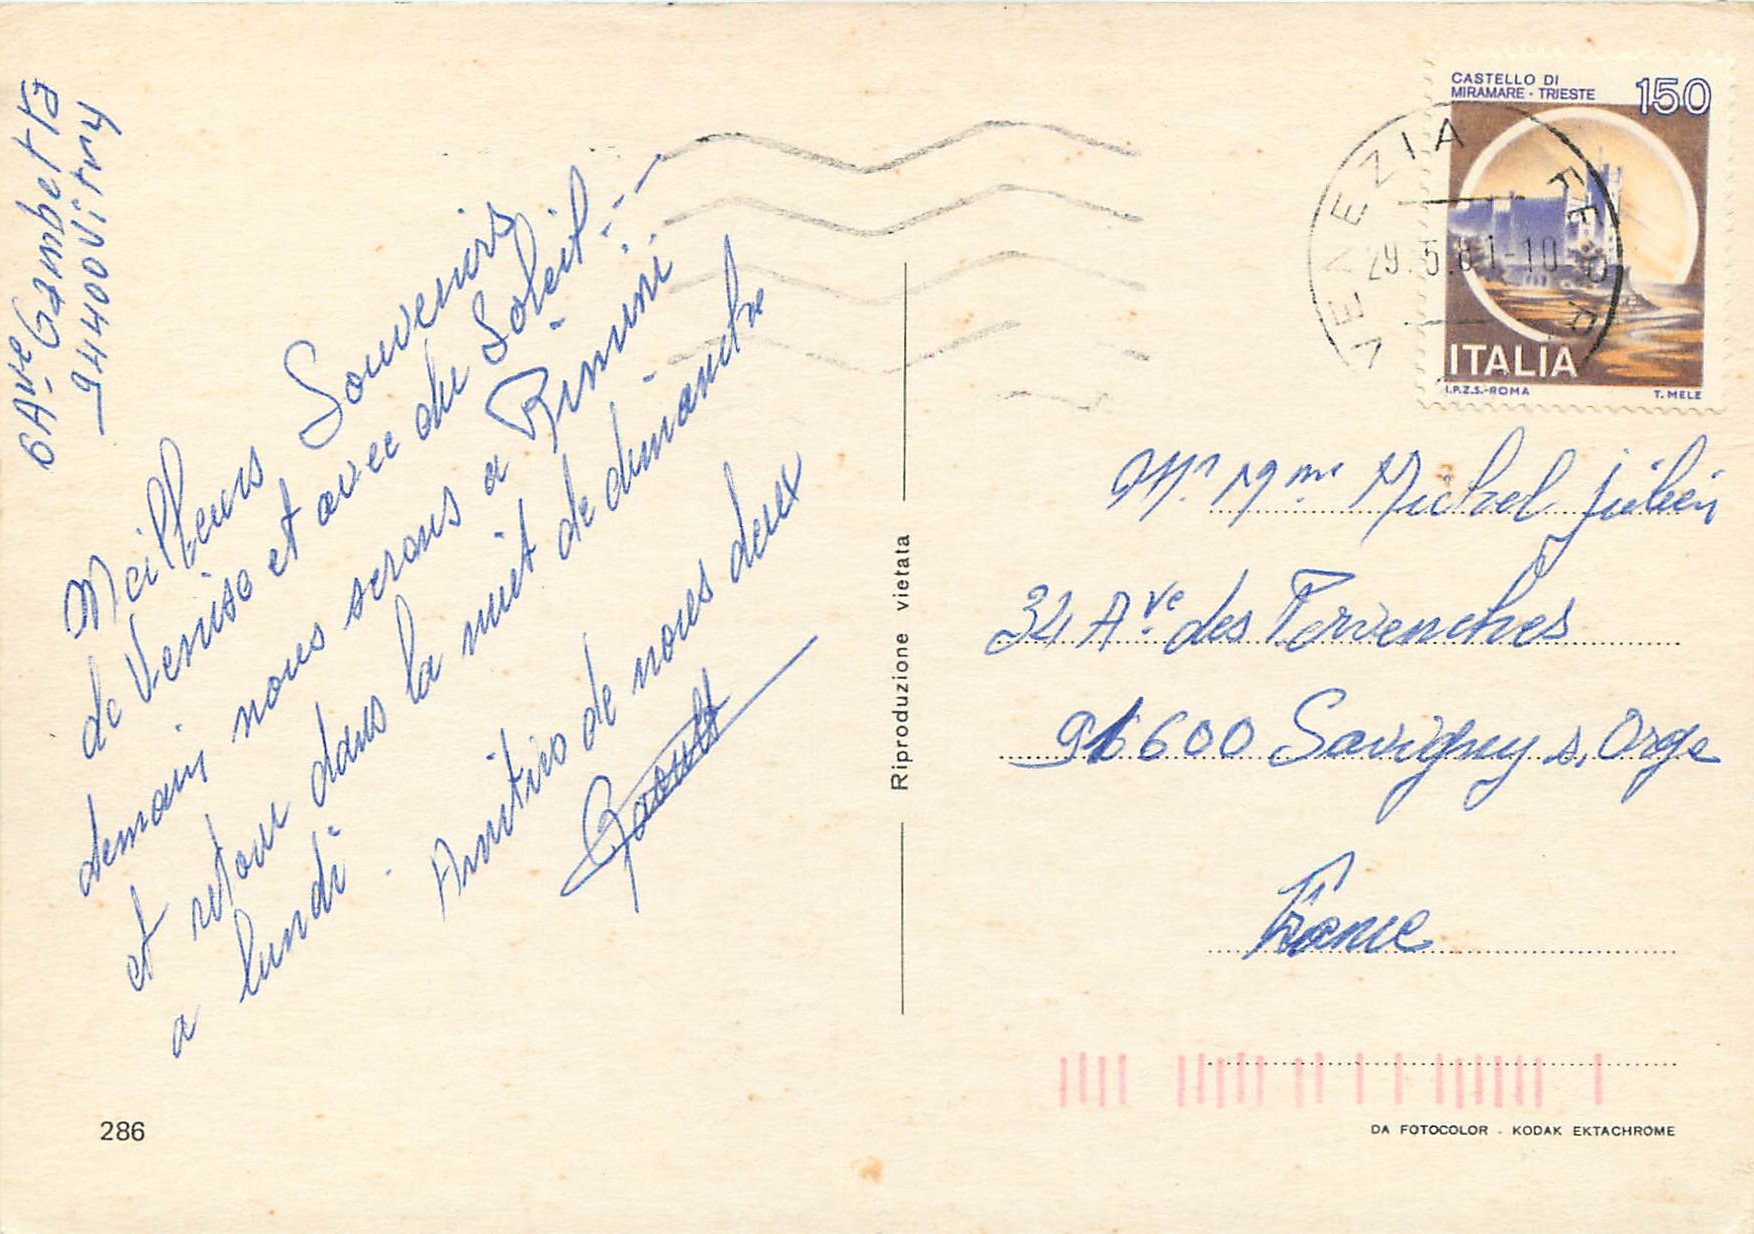 6 Ave Gambetta
94400 Vitry
Meilleurs Souvenirs
de Venise et avec du Soleil...
demain nous serons a Rimini
et retour dans la nuit de dimanche
a lundi.
Amitiés de nous deux
286
Riproduzione vietata
CASTELLO DI
MIRAMARE - TRIESTE
150
ITALIA
I.P.Z.S.-ROMA
T. MELE
VENEZIA FERR
29.5.81-10
Mr Mme Michel Julien
34 Ave des Pervenches
91600 Savigny s, Orge
France
DA FOTOCOLOR - KODAK EKTACHROME